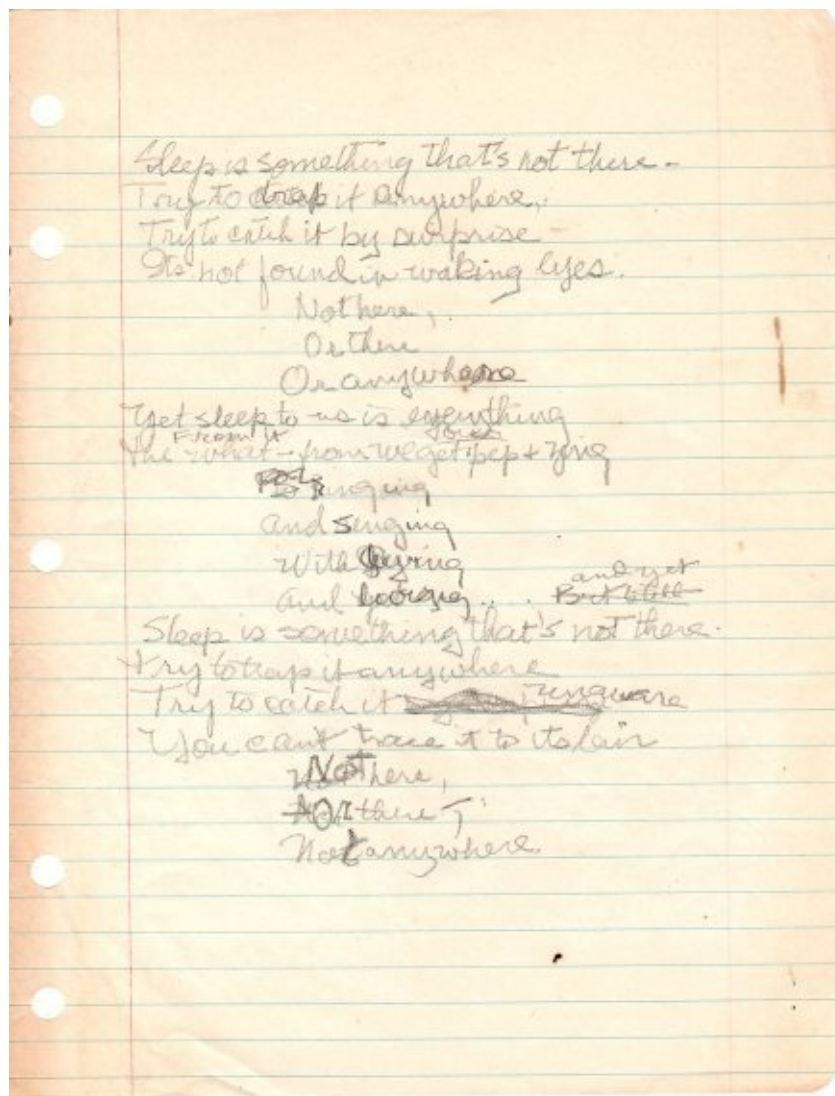 Sleep is something that's not there -
Try to trap it anywhere,
Try to catch it by surprise -
It's not found in waking eyes.
Not here,
Or there
Or anywhere
Yet sleep to us is everything
From it
The what-from we get pep + zing
and singing
With
and
and yet
But
Sleep is something that's not there.
Try to trap it anywhere
Try to catch it unaware
You can't trace it to its lair
Not here,
Or there,
Not anywhere.